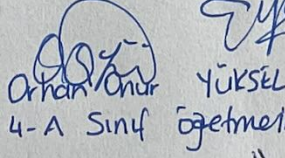 Orhan Onur YÜKSEL
4-A Sınıf öğetmen